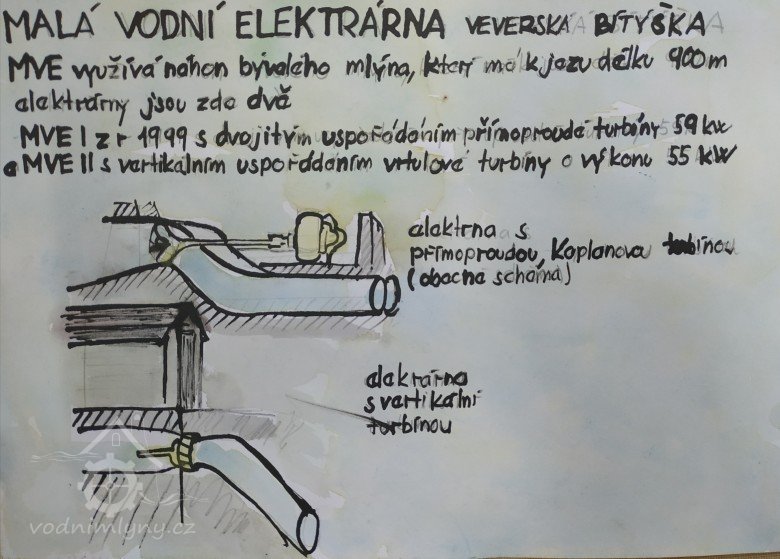 MALÁ VODNÍ ELEKTRÁRNA VEVERSKÁ BÍTÝŠKA
MVE využívá náhon bývalého mlýna, který má k jezu délku 900 m
elektrárny jsou zde dvě
MVE I z r 1999 s dvojitým uspořádáním přímoproudé turbíny 59 kw
a MVE II s vertikálním uspořádáním vrtulové turbíny o výkonu 55 kW
elektrna s
přímoproudou, Kaplanova turbínou
(obecné schéma)
elektrárna
s vertikální
turbínou
vodnimlyny.cz